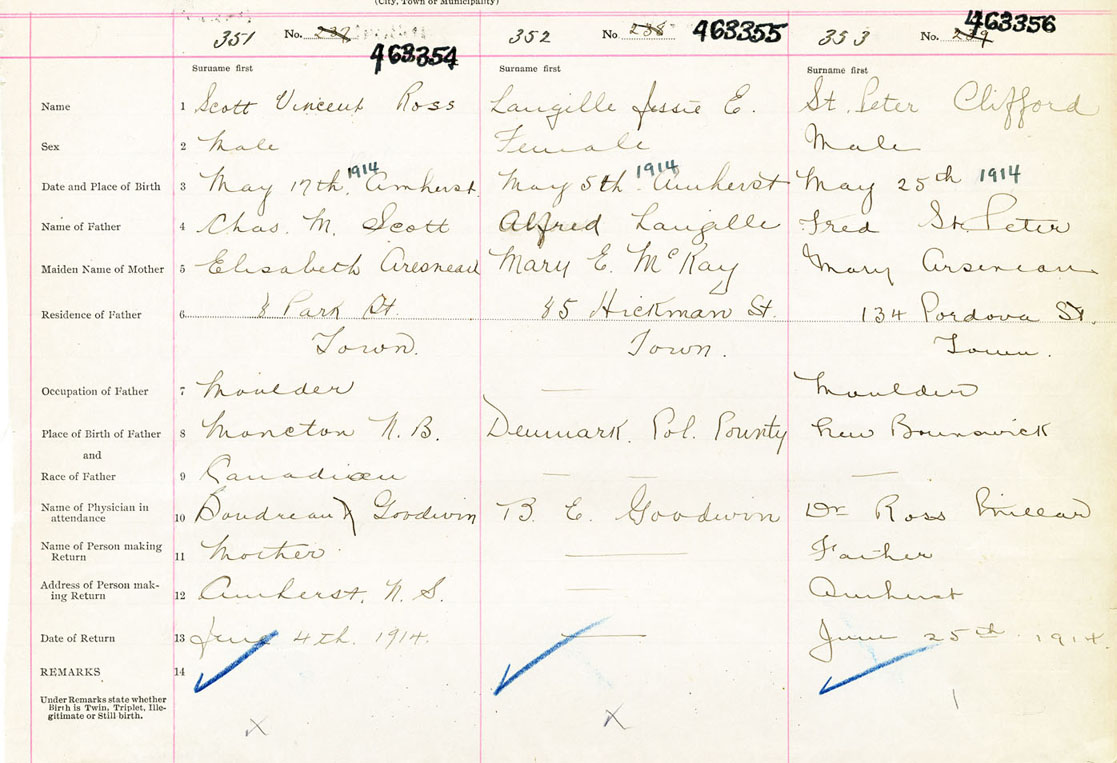 (City, Town or Municipality)
351 No. 237 463354 352 No 238 463355 353 No. 239 463356
Surname first Surname first Surname first
Name 1 Scott Vincent Ross Langille Jessie E. St. Peter Clifford
Sex 2 Male Female Male
Date and Place of Birth 3 May 17th, 1914 Amherst. May 5th 1914 Amherst May 25th 1914
Name of Father 4 Chas. M. Scott Alfred Langille Fred St. Peter
Maiden Name of Mother 5 Elisabeth Aresneau Mary E. McKay Mary Arseneau
Residence of Father 6 8 Park St. 85 Hickman St. 134 Pordova St.
Town. Town. Town.
Occupation of Father 7 Moulder — Moulder
Place of Birth of Father 8 Moncton N.B. Denmark. Col. County New Brunswick
and
Race of Father 9 Canadian — — —
Name of Physician in
attendance 10 Boudreau Goodwin B. E. Goodwin Dr Ross Millar
Name of Person making
Return 11 Mother — Father
Address of Person mak-
ing Return 12 Amherst, N.S. — Amherst
Date of Return 13 June 4th. 1914. — June 25th 1914
REMARKS 14
Under Remarks state whether
Birth is Twin, Triplet, Ille-
gitimate or Still birth.
x x